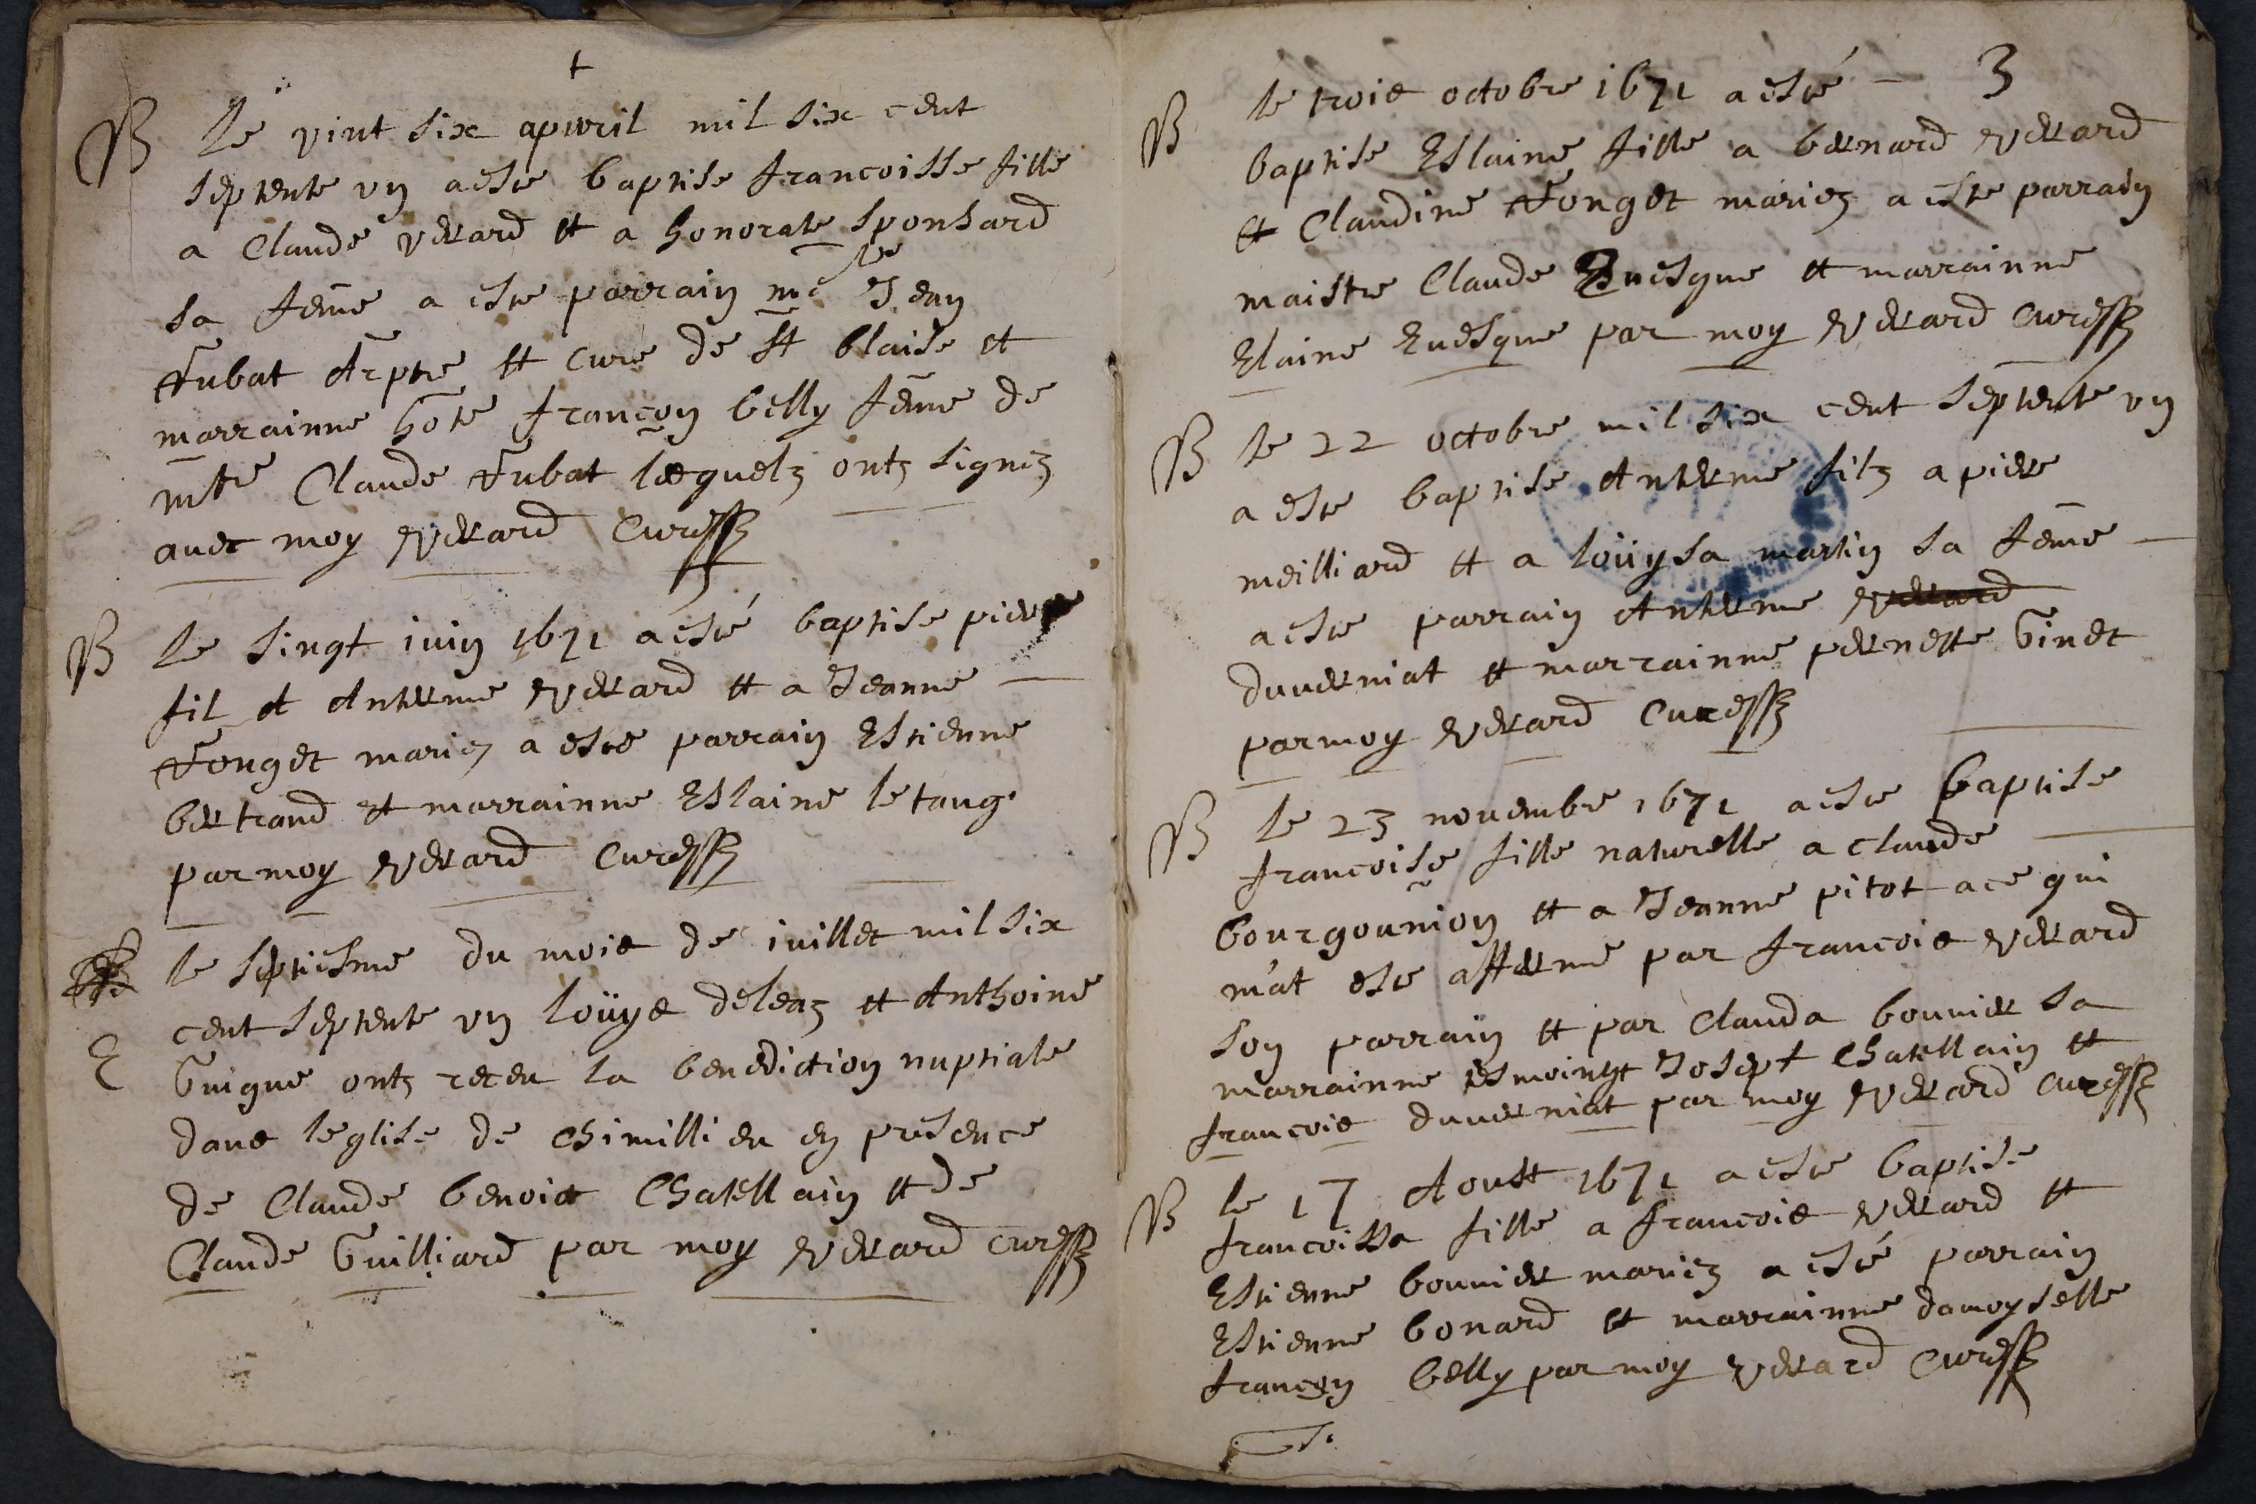 B le vint six apuril mil six cent
septente un a este baptise francoisse fille
a Claude verard et a honorate sponsard
sa feme a este parrain mé Jean
Fubat Arptre et cure de st blaise et
marrainne hote françon belly feme de
mtre Claude Fubat lequelz ontz signez
avec moy verard cure
B le singt iuin 1671 a esté baptise piere
fil A Anterme verard et a Jeanne
Fonget mariez a este parrain Estienne
bertrand et marrainne Eslaine le tang
par moy verard cure
le septiesme du mois de iuillet mil six
cent septente un loüys deleaz et Anthoine
E Guigue ontz receu la benediction nuptiale
dans leglise de chimillieu en presence
de Claude benoict Chatellain et de
Claude Guilliard par moy verard cure
3
B le trois octobre 1671 a esté
baptise Eslaine fille a bernard verard
et Claudine Fonget mariez a este parrain
maistre Claude Euesque et marrainne
Elaine Euesque par moy verard cure
B le 22 octobre mil six cent septente un
a este baptise Anterme filz a piere
meilliard et a loüysa martin sa feme
a este parrain Anterme verard
duuerniat et marrainne pernette Ginet
par moy verard cure
B le 23 nouembre 1671 a este baptise
françoise fille naturelle a claude
bourgounion et a Jeanne pitot a ce qui
m'at este afferme par francois verard
son parrain et par Clauda bouuier sa
marrainne tesmoingt Josept Chatellain et
francois duuerniat par moy verard cure
B le 17 Aoust 1671 a este baptise
francoissa fille a francois verard et
Estienne bouuier mariez a esté parrain
Estienne bonard et marrainne damoyselle
françon belly par moy verard cure